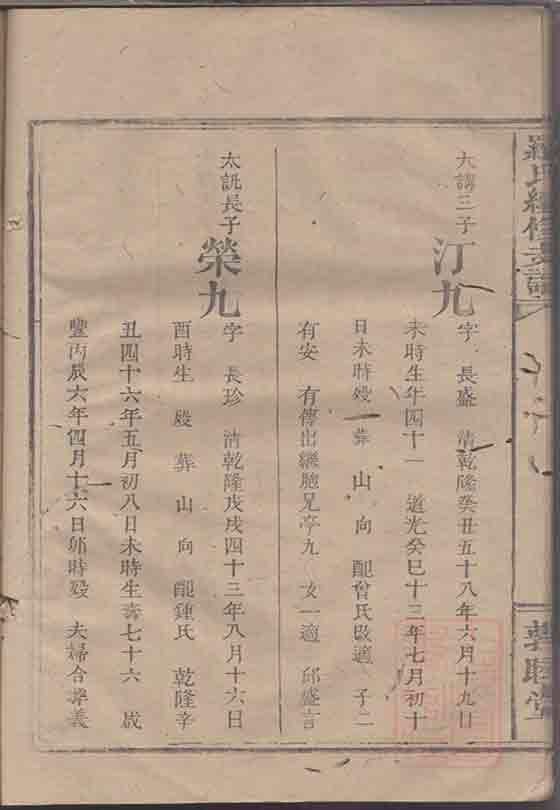 羅氏經修支譜
敦睦堂
大講三子
汀九
字 長盛 清乾隆癸丑五十八年六月十九日
未時生年四十一 道光癸巳十三年七月初十
日未時歿 葬 山 向 配曾氏改適 子二
有安 有傳出繼胞兄亭九 女一適 邱盛言
太訛長子
榮九
字 長珍 清乾隆戊戌四十三年八月十六日
酉時生 歿 葬 山 向 配鍾氏 乾隆辛
丑四十六年五月初八日未時生壽七十六 咸
豐丙辰六年四月十六日卯時歿 夫婦合葬義